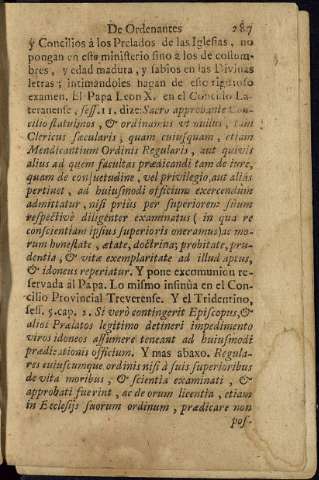 De Ordenantes 287
y Concilios à los Prelados de las Iglesias, no
pongan en este ministerio sino à los de costum-
bres, y edad madura, y sabios en las Divinas
letras; intimandoles hagan de esto riguroso
examen. El Papa Leon X. en el Concilio La-
teranense, sess. 11. dize: Sacro approbante Con-
cilio statuimus, & ordinamus ut nullus, tam
Clericus sæcularis, quam cuiusquam, etiam
Mendicantium Ordinis Regularis, aut quivis
alius ad quem facultas prædicandi tam de iure,
quam de consuetudine, vel privilegio, aut aliàs
pertinet, ad huiusmodi officium exercendum
admittatur, nisi prius per superiorem suum
respectivè diligenter examinatus (in qua re
conscientiam ipsius superioris oneramus) ac mo-
rum honestate, ætate, doctrina, probitate, pru-
dentia, & vita exemplaritate ad illud aptus,
& idoneus reperiatur. Y pone excomunion re-
servada al Papa. Lo mismo insinùa en el Con-
cilio Provincial Treverense. Y el Tridentino,
sess. 5. cap. 2. Si verò contingerit Episcopus, &
alios Prælatos legitimo detineri impedimento
viros idoneos assumere teneant ad huiusmodi
prædicationis officium. Y mas abaxo. Regula-
res cuiuscumque ordinis nisi à suis superioribus
de vita moribus, & scientia examinati, &
approbati fuerint, ac de orum licentia, etiam
in Ecclesijs suorum ordinum, prædicare non
pos-